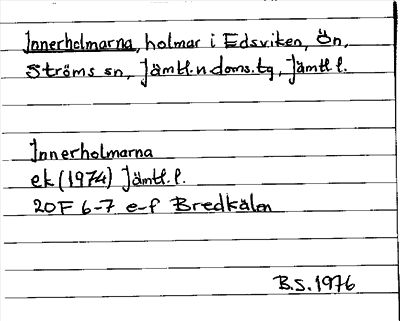 Innerholmarna, holmar i Edsviken, Ön,
Ströms sn, Jämtl. n doms. tg, Jämtl. l.
Innerholmarna
ek (1974) Jämtl. l.
20F 6-7 e-f Bredkälen
B.S. 1976